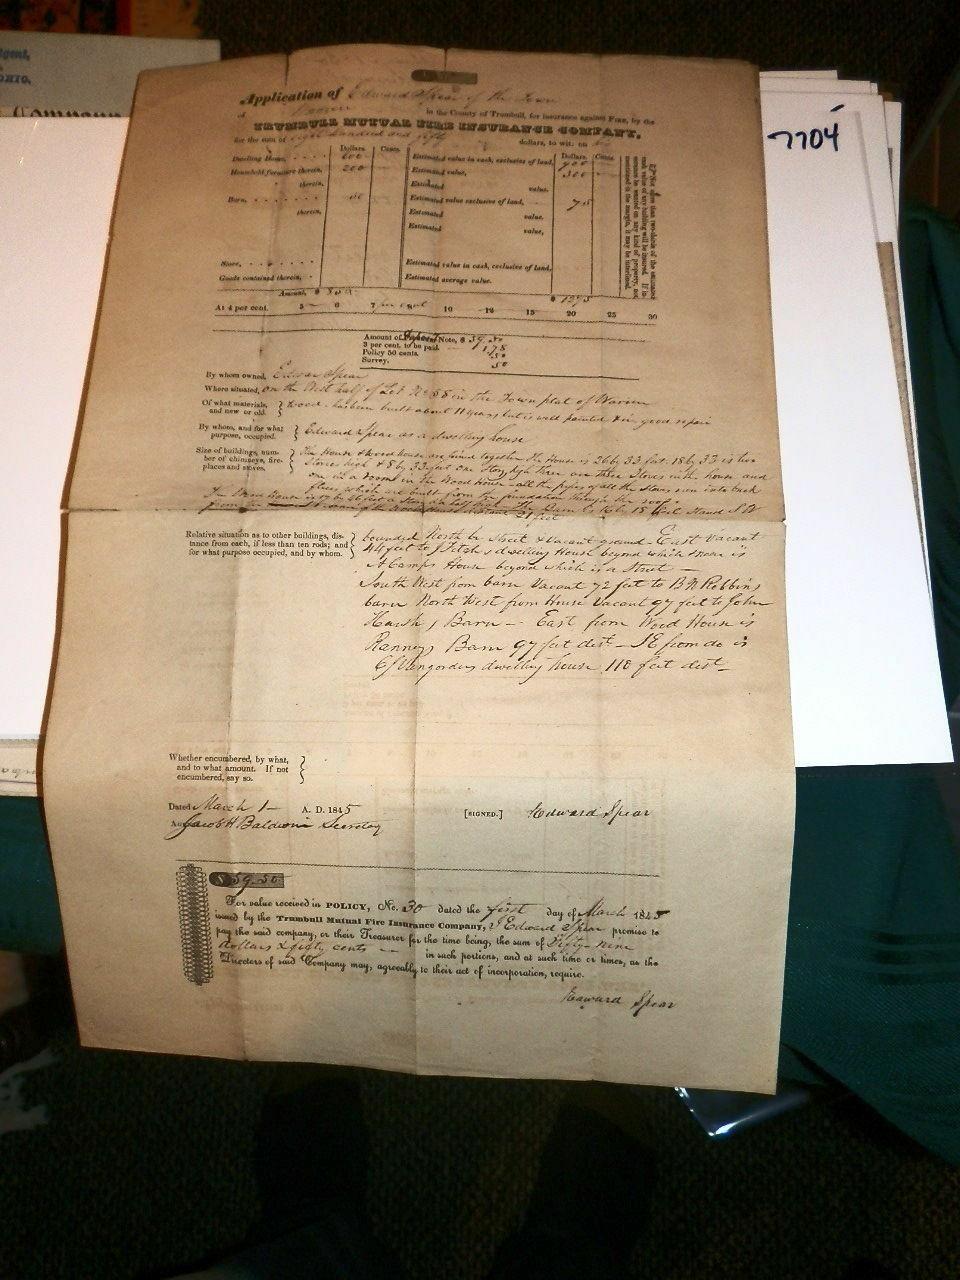 gent,
OHIO.
Company
7704
Application of Edward Spear of the Town
of Warren in the County of Trumbull, for insurance against Fire, by the
TRUMBULL MUTUAL FIRE INSURANCE COMPANY,
for the sum of eight hundred and fifty dollars, to wit: on
Dollars. Cents. Dollars. Cents.
Dwelling House, 600 Estimated value in cash, exclusive of land, 900
Household furniture therein, 200 Estimated value, 300
therein, Estimated value.
Barn, 50 Estimated value exclusive of land, 75
therein, Estimated value.
Estimated value,
Store, Estimated value in cash, exclusive of land,
Goods contained therein, Estimated average value.
Amount, $ 850 $ 1275
At 4 per cent. 5 6 7 per cent 10 12 15 20 25 30
Not more than two-thirds of the estimated
cash value of any building will be insured. If in-
surance be wanted on any kind of property, not
mentioned in the margin, it may be inserted.
Amount of Note, $ 59.50
3 per cent. to be paid. 1.78
Policy 50 cents. 50
Survey. 50
By whom owned, Edward Spear
Where situated, on the West half of Lot No 38 in the Town plat of Warren
Of what materials, and new or old. } Wood has been built about 11 years but is well painted & in good repair
By whom, and for what purpose, occupied. } Edward Spear as a dwelling house
Size of buildings, num-
ber of chimneys, fire-
places and stoves. } The House & wood house are joined together the House is 26 by 33 feet. 18 by 33 is two
Stories high & 8 by 33 feet one Story high there are three Stoves in the house and
one in a room in the Wood house - all the pipes of all the Stoves run into brick
flues which are built from the foundation through the roof
Relative situation as to other buildings, dis-
tance from each, if less than ten rods; and
for what purpose occupied, and by whom. } bounded North by Street & Vacant ground - East Vacant
44 feet to J Stiles dwelling House beyond which is
A Camps House beyond which is a Street -
South West from barn Vacant 72 feet to B N Robbins
barn North West from House Vacant 97 feet to John
Harshs Barn - East from Wood House is
Ranneys Barn 97 feet dist - SE from do is
C Vangorders dwelling house 118 feet dist -
Whether encumbered, by what,
and to what amount. If not
encumbered, say so. }
Dated March 1 - A. D. 1845 [SIGNED.] Edward Spear
Jacob H Baldwin Secretary
$ 59.50
For value received in POLICY, No. 30 dated the first day of March 1845
issued by the Trumbull Mutual Fire Insurance Company, I Edward Spear promise to
pay the said company, or their Treasurer for the time being, the sum of Fifty-nine
dollars & fifty cents - in such portions, and at such time or times, as the
Directors of said Company may, agreeably to their act of incorporation, require.
Edward Spear